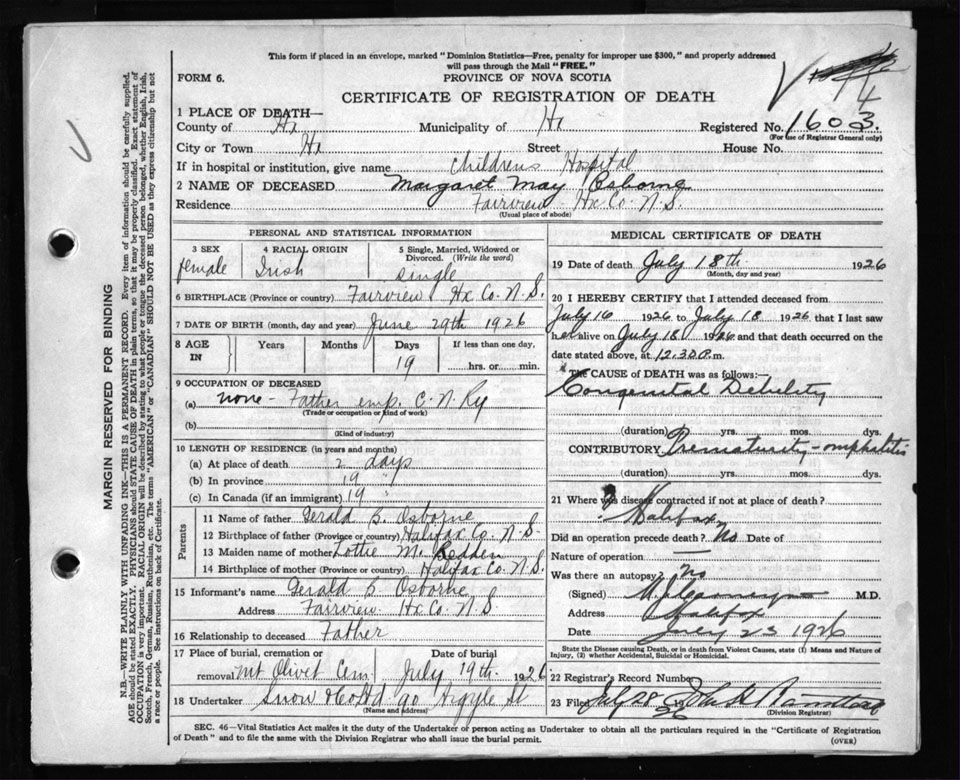 This form if placed in an envelope, marked "Dominion Statistics—Free, penalty for improper use $300," and properly addressed
will pass through the Mail "FREE."
FORM 6.
PROVINCE OF NOVA SCOTIA
CERTIFICATE OF REGISTRATION OF DEATH
1 PLACE OF DEATH—
County of Hx Municipality of Hx Registered No. 1603.
(For use of Registrar General only)
City or Town Hx Street House No.
If in hospital or institution, give name Childrens Hospital
2 NAME OF DECEASED Margaret May Osborne
Residence Fairview Hx Co. N.S.
(Usual place of abode)
PERSONAL AND STATISTICAL INFORMATION
3 SEX female
4 RACIAL ORIGIN Irish
5 Single, Married, Widowed or Divorced. (Write the word) single
6 BIRTHPLACE (Province or country) Fairview Hx Co. N.S.
7 DATE OF BIRTH (month, day and year) June 29th 1926
8 AGE IN Years Months Days If less than one day,
19 hrs. or min.
9 OCCUPATION OF DECEASED
(a) none - Father emp. C.N. Ry
(Trade or occupation or kind of work)
(b)
(Kind of industry)
10 LENGTH OF RESIDENCE (in years and months)
(a) At place of death 2 days
(b) In province 19 "
(c) In Canada (if an immigrant) 19 "
Parents
11 Name of father Gerald B. Osborne
12 Birthplace of father (Province or country) Halifax Co. N.S.
13 Maiden name of mother Lottie M. Redden
14 Birthplace of mother (Province or country) Halifax Co. N.S.
15 Informant's name Gerald B Osborne
Address Fairview Hx Co. N.S
16 Relationship to deceased Father
17 Place of burial, cremation or removal Mt Olivet Cem Date of burial July 19th 1926
18 Undertaker Snow & Co Ltd 90 Argyle St
(Name and address)
MEDICAL CERTIFICATE OF DEATH
19 Date of death July 18th 1926
(Month, day and year)
20 I HEREBY CERTIFY that I attended deceased from
July 16 1926 to July 18 1926 that I last saw
her alive on July 18 1926 and that death occurred on the
date stated above, at 12.30 P.m.
The CAUSE of DEATH was as follows:—
Congenital Debility
(duration) yrs. mos. dys.
CONTRIBUTORY Prematurity - omphalitis
(duration) yrs. mos. dys.
21 Where was disease contracted if not at place of death?
? Halifax
Did an operation precede death? No Date of
Nature of operation —
Was there an autopsy? No
(Signed) M.D.
Address Halifax
Date July 23 1926
State the Disease causing Death, or in death from Violent Causes, state (1) Means and Nature of
Injury, (2) whether Accidental, Suicidal or Homicidal.
22 Registrar's Record Number
23 Filed July 28 1926
(Division Registrar)
SEC. 46—Vital Statistics Act makes it the duty of the Undertaker or person acting as Undertaker to obtain all the particulars required in the "Certificate of Registration
of Death" and to file the same with the Division Registrar who shall issue the burial permit.
(OVER)
MARGIN RESERVED FOR BINDING
N.B.—WRITE PLAINLY WITH UNFADING INK—THIS IS A PERMANENT RECORD. Every item of information should be carefully supplied.
AGE should be stated EXACTLY. PHYSICIANS should STATE CAUSE OF DEATH in plain terms, so that it may be properly classified. Exact statement of
OCCUPATION is very important. RACIAL ORIGIN will be described by stating to what people or tongue the deceased person belonged, whether English, Irish,
Scotch, French, German, Russian, Ruthenian, etc. The terms "AMERICAN" or "CANADIAN" SHOULD NOT BE USED as they express citizenship but not
a race or people. See instructions on back of Certificate.